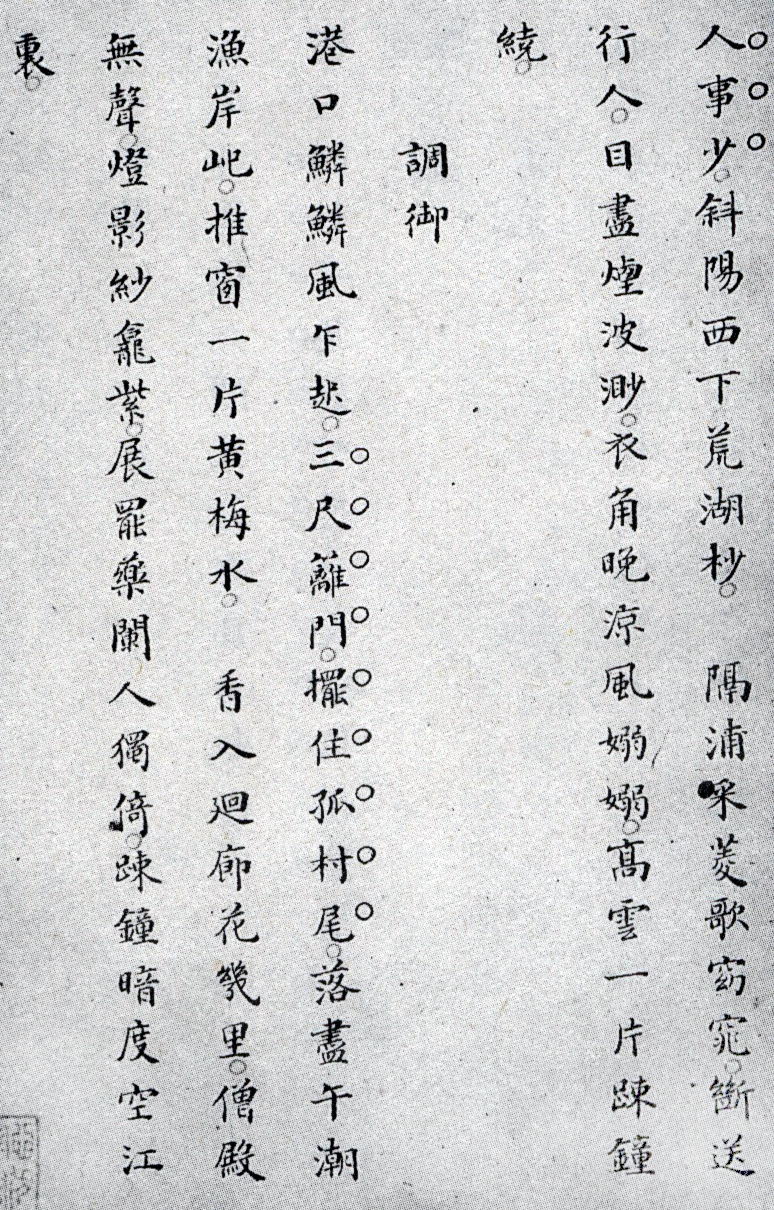 人事少斜陽西下荒湖杪　隔浦采菱歌窈窕斷送
行人目盡煙波渺衣角晚涼風嫋嫋高雲一片踈鐘
繞
調御
港口鱗鱗風乍起三尺蘺門擺住孤村尾落盡午潮
漁岸屺推窗一片黃梅水　香入迴廊花幾里僧殿
無聲燈影紗龕紫展罷藥闌人獨倚踈鐘暗度空江
裏